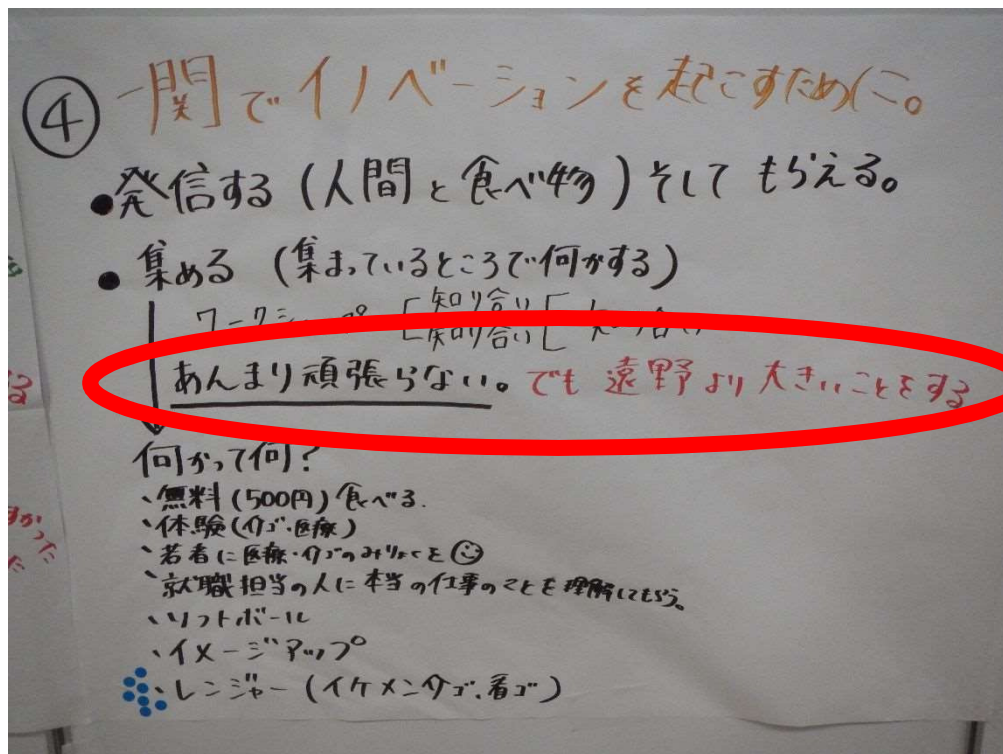 ④ 一関でイノベーションを起こすために。
●発信する(人間と食べ物)そしてもらえる。
●集める(集まっているところで何かする)
ワークショップ 知り合い
知り合い
あんまり頑張らない。でも遠野より大きいことをする
何かって何?
、無料(500円)食べる.
、体験(介ゴ・医療)
、若者に医療・介ゴのみりょくを
、就職担当の人に本当の仕事のことを理解してもらう。
、ソフトボール
、イメージアップ
、レンジャー(イケメン介ゴ、看ゴ)